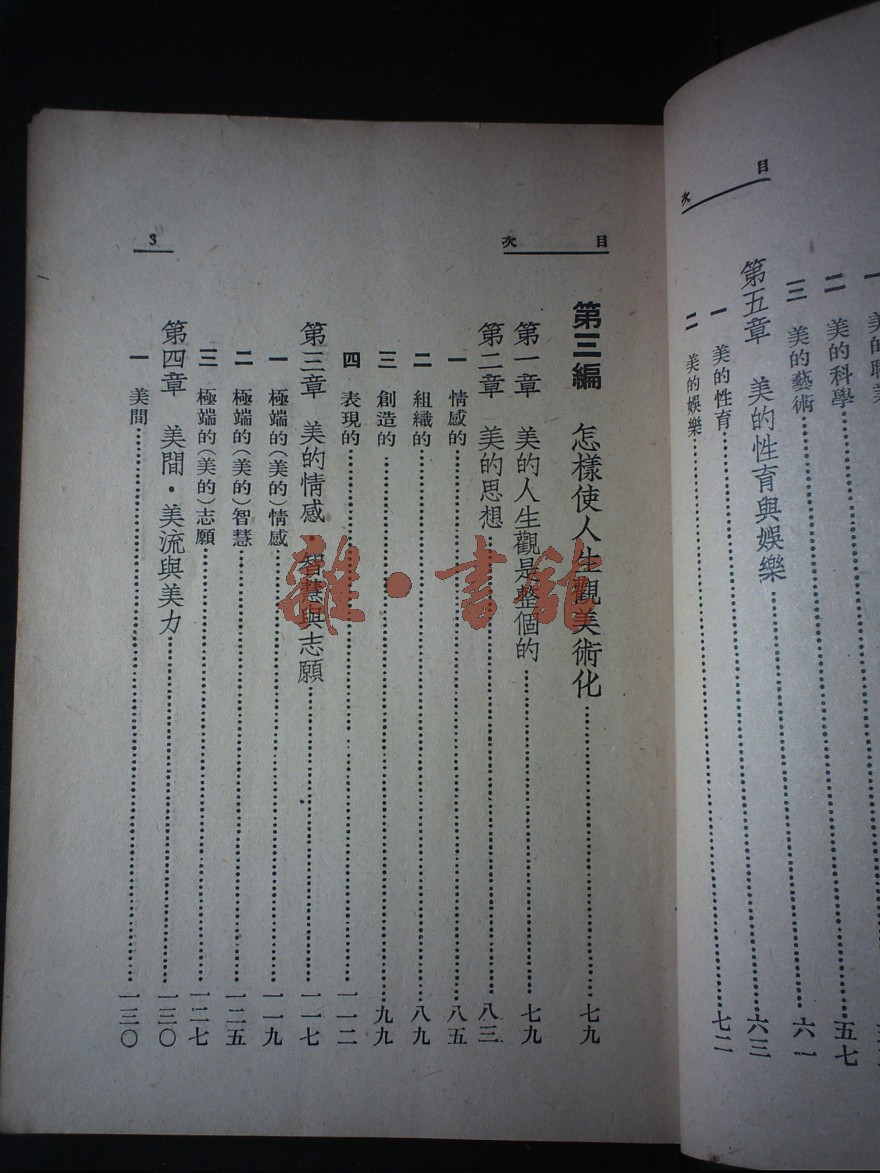 目次
二 美的科學
三 美的藝術……五七
第五章 美的性育與娛樂……六一
一 美的性育……六三
二 美的娛樂……七二
目次
3
第三編 怎樣使人生觀美術化……七九
第一章 美的人生觀是整個的……七九
第二章 美的思想……八三
一 情感的……八五
二 組織的……八九
三 創造的……九九
四 表現的……一一二
第三章 美的情感·智慧與志願……一一七
一 極端的(美的)情感……一一九
二 極端的(美的)智慧……一二五
三 極端的(美的)志願……一二七
第四章 美間·美流與美力……一三〇
一 美間……一三〇
雜·書館